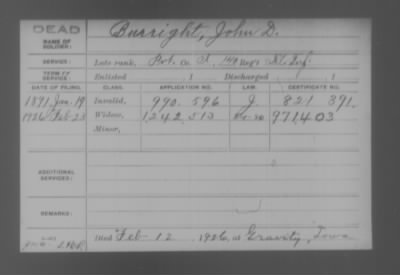 DEAD
NAME OF SOLDIER:
Burright, John D.
SERVICE:
Late rank, Pvt. Co. A, 149 Reg't Ill Inf.
TERM OF SERVICE:
Enlisted , 1 Discharged , 1
DATE OF FILING. CLASS. APPLICATION NO. LAW. CERTIFICATE NO.
1891, Jan. 19 Invalid, 990.596 J. 821 391.
1926 Feb-23 Widow, 1,242,513 971403
Minor,
ADDITIONAL SERVICES:
REMARKS:
Died Feb- 12 1926, at Gravity, Iowa